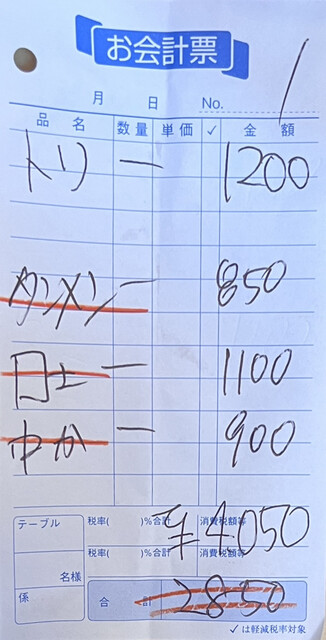 お会計票
月 日 No. /
品名 数量 単価 ✓ 金額
トリ 一 1200
タンメン 一 850
日士 一 1100
中か 一 900
¥4,050
テーブル 税率( )%合計 消費税額等
税率( )%合計 消費税額等
名様
係 合計 2850
✓は軽減税率対象